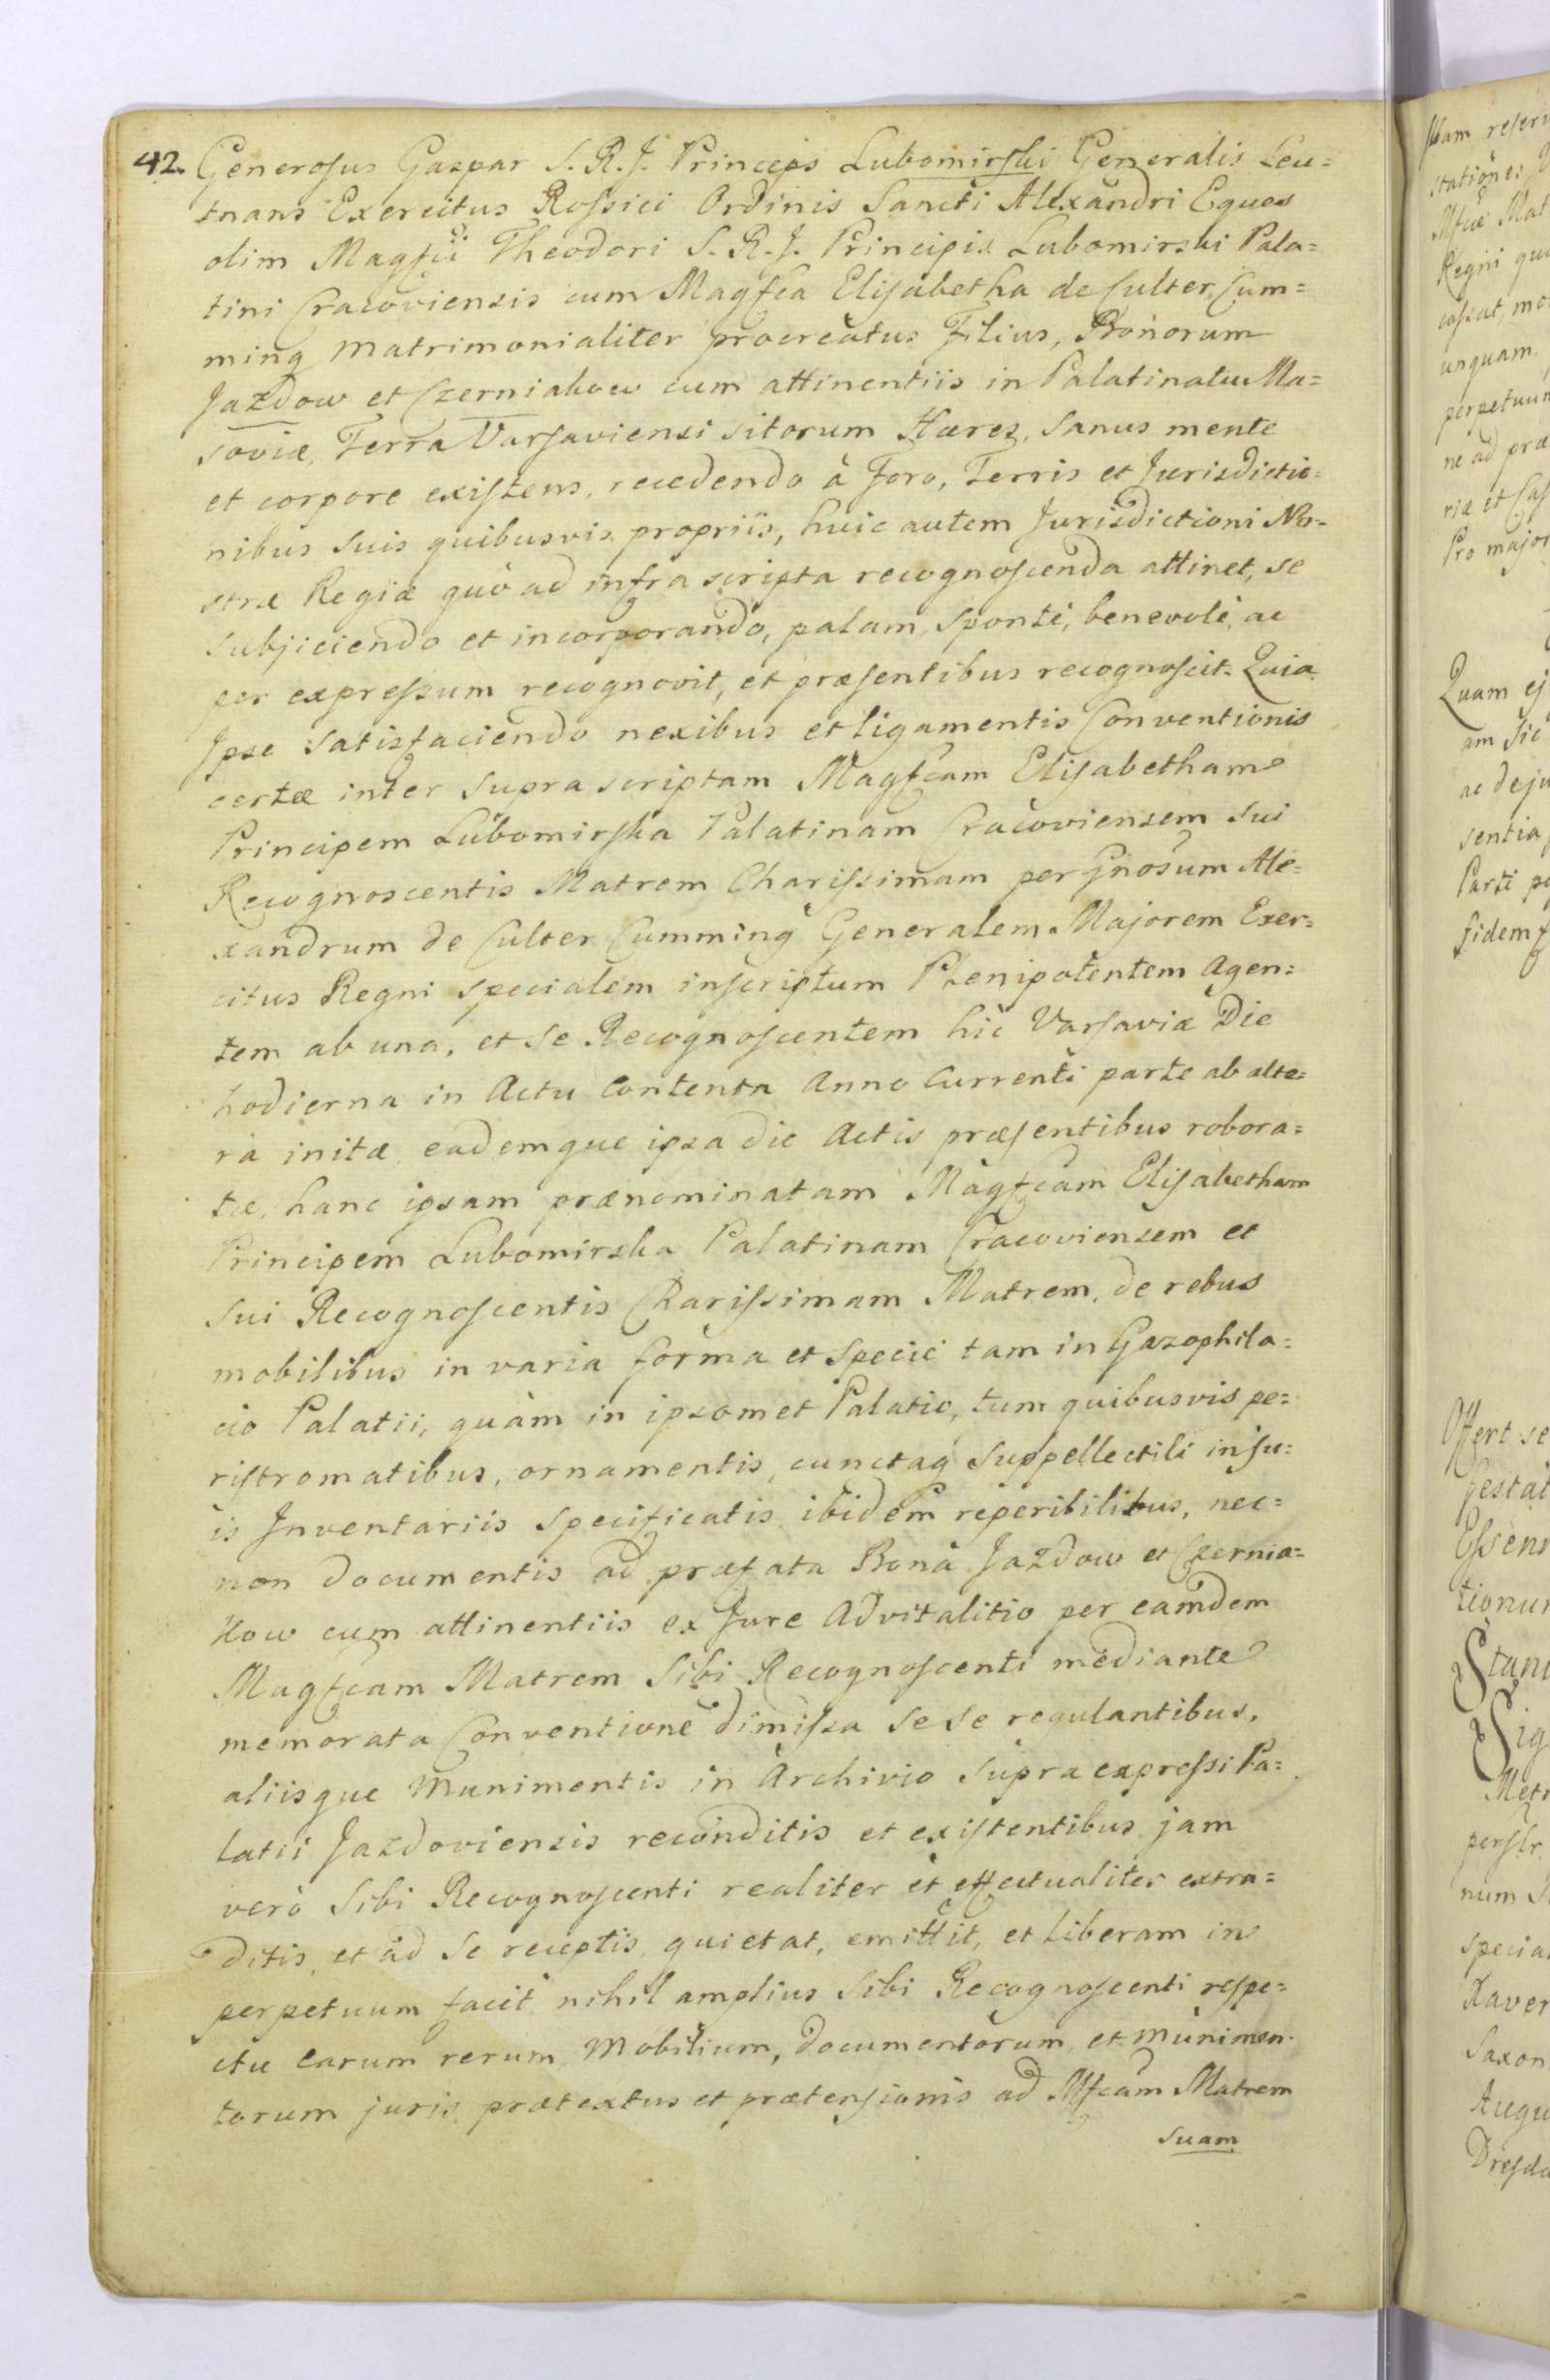 42. Generosus Gaspar S. R. J. Princeps Lubomirski Generalis Leu=
tnans Exercitus Rossici Ordinis Sancti Alexandri Eques
olim Magfci Theodori S. R. J. Principis Lubomirski Pala=
tini Cracoviensis cum Magfca Elisabetha de Culter Cum=
ming matrimonialiter procreatus Filius, Bonorum
Jazdow et Czerniakow cum attinentiis in Palatinatu Ma=
soviæ, Terra Varsaviensi sitorum Hæres, sanus mente
et corpore existens, recedendo à Foro, Terris et Jurisdictio=
nibus suis quibusvis propriis, huic autem Jurisdictioni No=
stræ Regiæ quò ad infra scripta recognoscenda attinet, se
subjiciendo et incorporando, palam, sponte, benevolè, ac
per expressum recognovit, et præsentibus recognoscit. Quia
Ipse satisfaciendo nexibus et ligamentis Conventionis
certæ inter supra scriptam Magfcam Elisabetham
Principem Lubomirska Palatinam Cracoviensem sui
Recognoscentis Matrem Charissimam per Gnosum Ale=
xandrum de Culter Cumming Generalem Majorem Exer=
citus Regni specialem inscriptum Plenipotentem Agen=
tem ab una, et se Recognoscentem hic Varsaviæ Die
hodierna in Actu Contenta Anno Currenti parte ab alte=
rà initæ, eademque ipsa die Actis præsentibus robora=
tæ, hanc ipsam prænominatam Magfcam Elisabetham
Principem Lubomirska Palatinam Cracoviensem et
sui Recognoscentis Charissimam Matrem, de rebus
mobilibus in varia forma et specie tam in Gazophila=
cio Palatii, quàm in ipsomet Palatio, tum quibusvis pe=
ristromatibus, ornamentis, cunctaq suppellectili in su=
is Inventariis specificatis ibidem reperibilibus, nec=
non documentis ad præfata Bona Jazdow et Czernia=
kow cum attinentiis ex Jure Advitalitio per eamdem
Magfcam Matrem Sibi Recognoscenti mediante
memorata Conventione dimissa sese regulantibus,
aliisque Munimentis in Archivio supra expressi Pa=
latii Jazdoviensis reconditis et existentibus, jam
verò Sibi Recognoscenti realiter et effectualiter extra=
ditis, et ad se receptis, quietat, emittit, et liberam in
perpetuum facit nihil amplius Sibi Recognoscenti respe=
ctu earum rerum Mobilium, Documentorum, et munimen=
torum juris prætextus et prætensionis ad Mfcam Matrem
suam